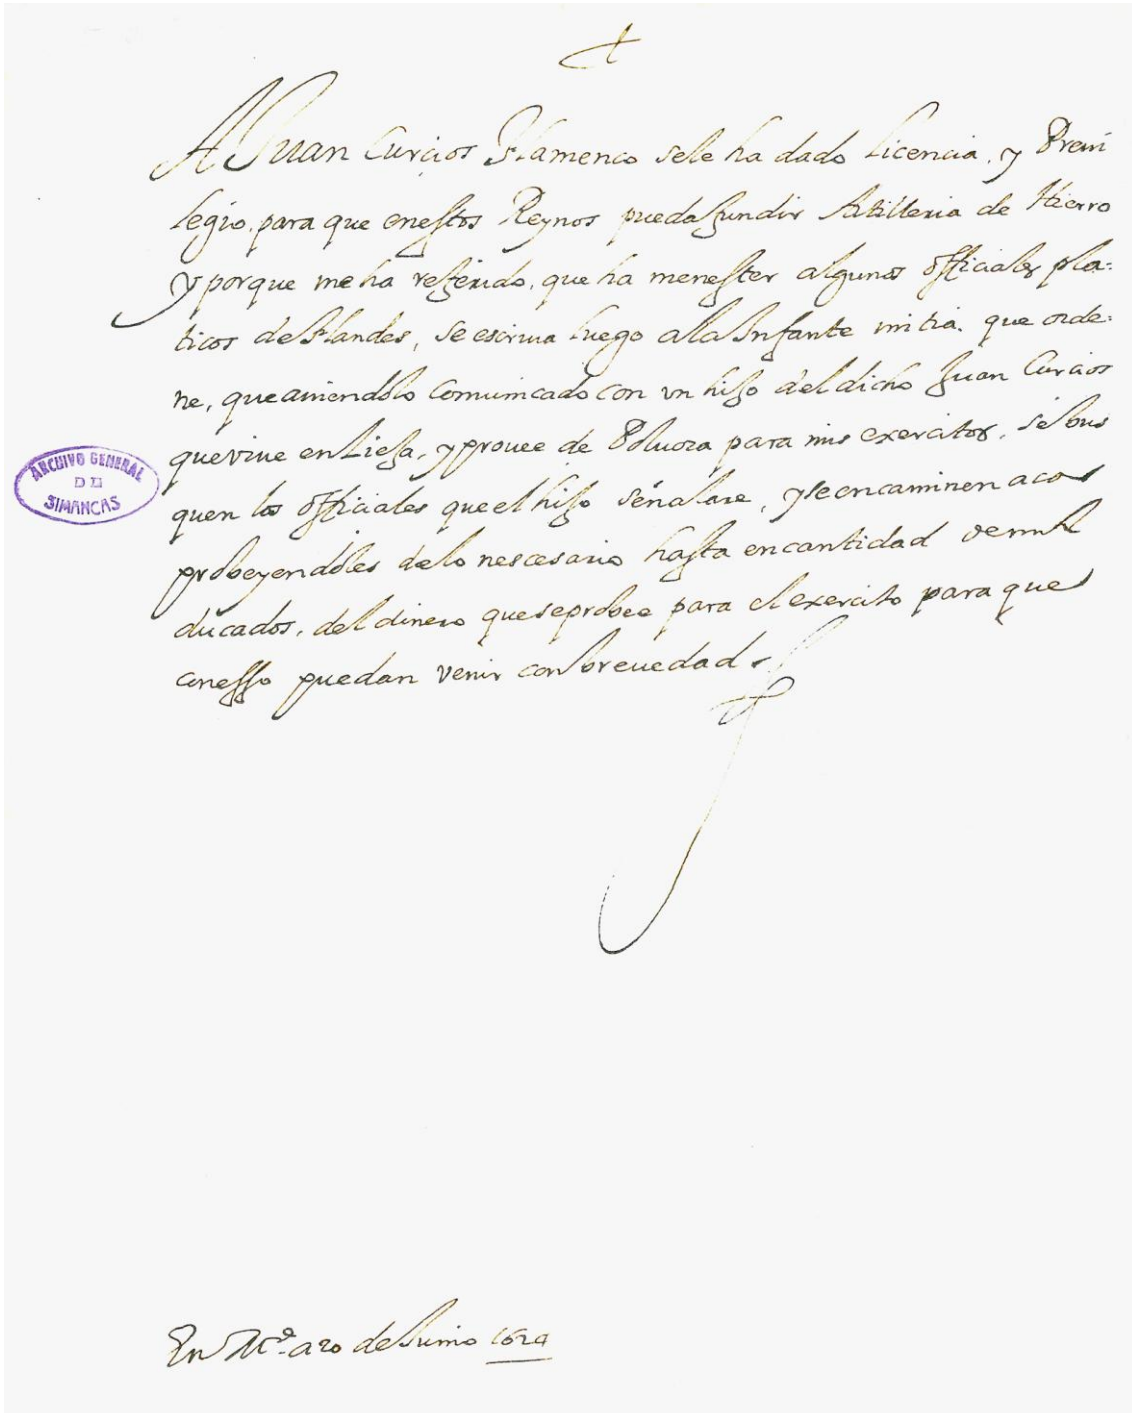 A Juan Curcios Flamenco sele ha dado Licencia, y Preui
legio, para que enestos Reynos pueda fundir Artilleria de Hierro
y porque me ha referido, que ha menester algunos officiales pla-
ticos de Flandes, se escriua luego ala Infante mi tia, que orde-
ne, que auiendolo Comunicado con vn hijo del dicho Juan Curcios
que viue en Lieja, y prouee de Poluora para mis exercitos, se bus
quen los officiales que el hijo señalare, y se encaminen aca
probeyendoles delo nescesario hasta en cantidad de mil
ducados, del dinero que se probee para el exercito para que
conesso puedan venir con breuedad
ARCHIVO GENERAL
DE
SIMANCAS
En M.d a 20 de Junio